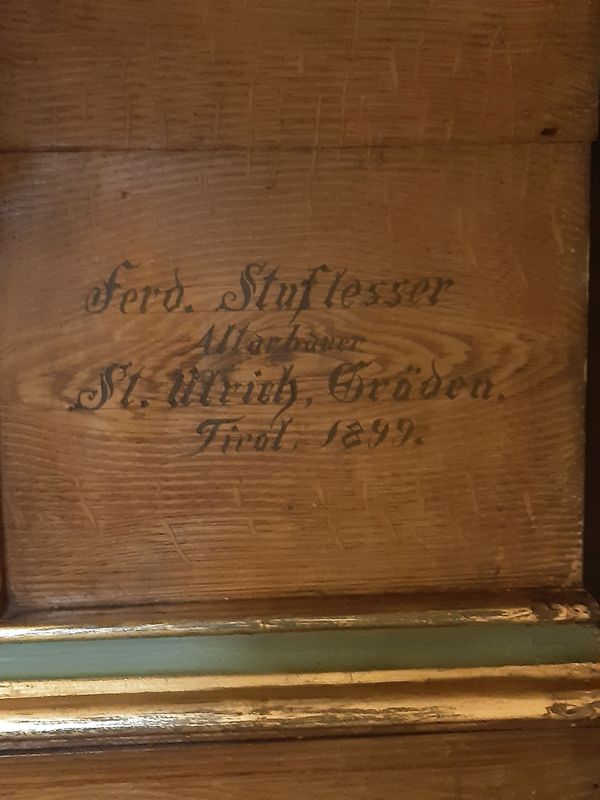 Ferd. Stuflesser
Altarbauer
St. Ulrich, Gröden.
Tirol. 1899.